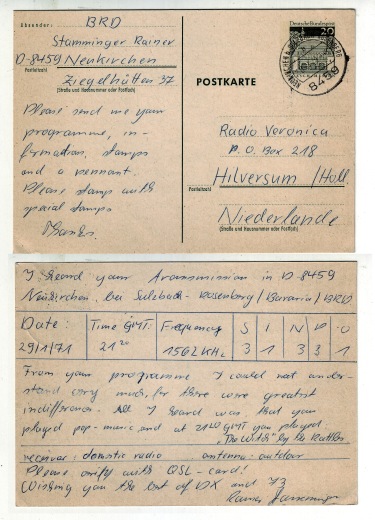 Absender:
BRD
Stamminger Rainer
D-8459 Neukirchen
Postleitzahl
Ziegelhütten 37
(Straße und Hausnummer oder Postfach)
Please send me your
programme, in-
formation, stamps
and a pennant.
Please stamp with
special stamps
Thanks.
Deutsche Bundespost
20
8459
POSTKARTE
Radio Veronica
P.O. Box 218
Postleitzahl
Hilversum / Holl.
Niederlande
(Straße und Hausnummer oder Postfach)
I heard your transmission in D-8459
Neukirchen, bei Sulzbach-Rosenberg/Bavaria/BRD
Date: Time GMT: Frequency S I N P O
29/1/71 21 20 1562 KHz 3 1 3 3 1
From your programme I could not under-
stand very much, for there were greatest
indifferences. All I heard was that you
played pop-music and at 2120 GMT you played
"The Witch" by the Rattles.
receiver: domestic radio antenna: outdoor
Please verify with QSL-card!
Wishing you the best of DX and 73
Rainer Stamminger